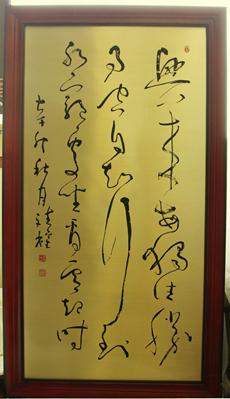 興来每獨往勝
事空自知行到
水窮處坐看雲起時
辛卯秋月